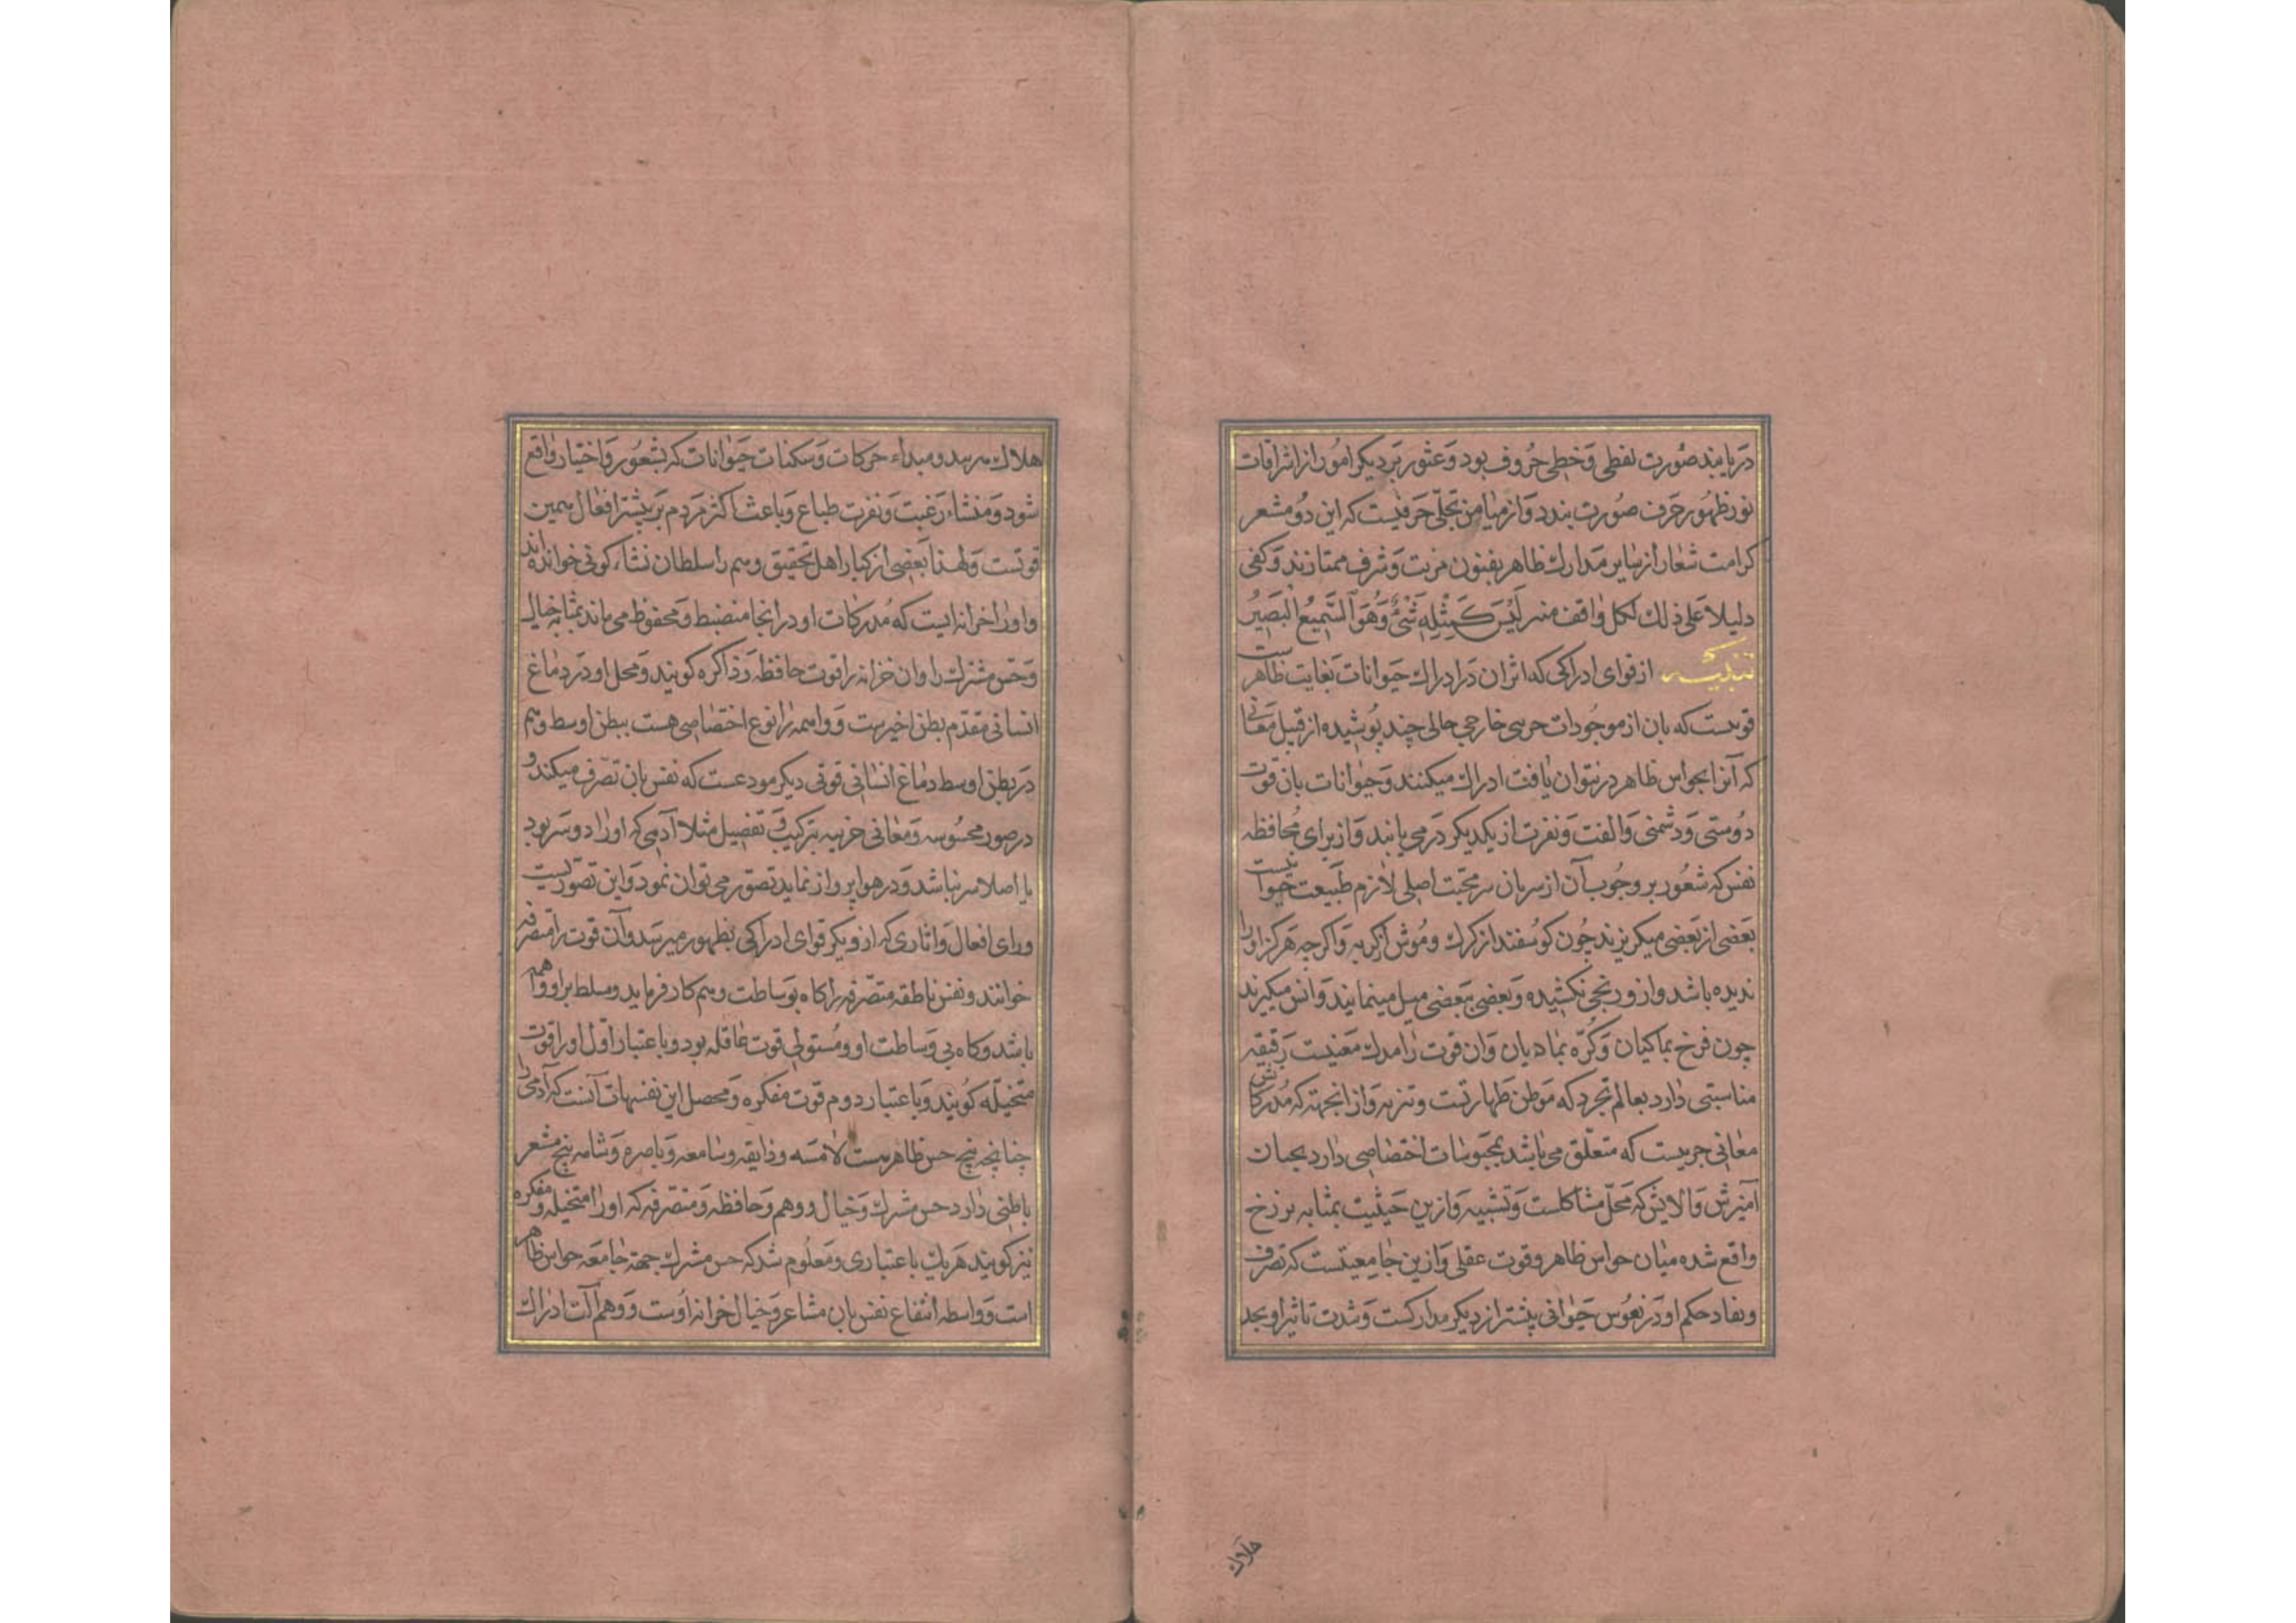 دریابند صورت لفظی و خطی حروف بود و عثور بر دیکر امور از اشراقات
نور ظهور حرف صورت بندد و از میامن تجلّی حرفیست که این دو مشعر
کرامت شعار از سایر مدارك ظاهر بفنون مزیت و شرف ممتازند و کفی
دلیلا علی ذلك لکل واقف منه لَیْسَ کَمِثْلِهِ شَیْءٌ وَهُوَ السَّمِیعُ الْبَصِیرُ
تنبیه از قوای ادراکی که اثر ان در ادراك حیوانات بغایت ظاهرست
قوتست که بان از موجودات حسی خارجی حالی چند پوشیده از قبیل معانی
که آنرا بحواس ظاهر درنتوان یافت ادراك میکنند و حیوانات بان قوت
دوستی و دشمنی و الفت و نفرت از یکدیکر درمی یابند و از برای محافظه
نفس که شعور بر وجوب آن از سریان سر محبت اصلی لازم طبیعت حیوانیست
بعضی از بعضی میکریزند چون کوسفند از کرك و موش از کربه و اکرچه هرکز اورا
ندیده باشد و ازو رنجی نکشیده و بعضی ببعضی میل مینمایند و انس میکیرند
چون فرخ بماکیان و کرّه بمادیان و ان قوت را مدرك معنیست رقیقه
مناسبتی دارد بعالم تجرد که موطن طهارتست و تنزه و از انجهته که مدرکاتش
معانی جزییست که متعلّق می باشد بمحسوسات اختصاصی دارد بجهان
آمیزش و الایش که محلّ مشاکلست و تشبیه و ازین حیثیت بمثابه برزخ
واقع شده میان حواس ظاهر و قوت عقلی و ازین جامعیتست که تصرف
و نفاد حکم او در نفوس حیوانی بیشتر از دیکر مدارکست و شدت تاثیر او بحد
هلاك
هلاك رسد و مبداء حرکات و سکنات حیوانات که بشعور و اختیار واقع
شود و منشاء رغبت و نفرت طباع و باعث اکثر مردم بر بیشتر افعال همین
قوتست و لهذا بعضی از کبار اهل تحقیق وهم را سلطان نشاء کونی خوانده اند
و اورا خزانه ایست که مدرکات او در انجا منضبط و محفوظ می ماند بمثابه خیال
و حس مشترك را و ان خزانه را قوت حافظه و ذاکره کویند و محل او در دماغ
انسانی مقدم بطن اخیرست و واهمه را نوع اختصاصی هست ببطن اوسط و هم
در بطن اوسط دماغ انسانی قوتی دیکر مودعست که نفس بان تصرف میکند و
در صور محسوسه و معانی جزییه بترکیب و تفصیل مثلا آدمی که اورا دو سر بود
یا اصلا سر نباشد و در هوا پرواز نماید تصور می توان نمود و این تصور نیست
ورای افعال و اثاری که از دیکر قوای ادراکی بظهور میرسد و آن قوت را متصرفه
خوانند و نفس ناطقه متصرفه را کاه بوساطت وهم کار فرماید و مسلط بر او واهمه
باشد و کاه بی وساطت او و مستولی قوت عاقله بود و باعتبار اول اورا قوت
متخیله کویند و باعتبار دوم قوت مفکره و محصل این تفسیهات آنست که آدمی را
چنانچه پنج حس ظاهرست لامسه و ذایقه و سامعه و باصره و شامه پنج مشعر
باطنی دارد حس مشترك و خیال و وهم و حافظه و متصرفه که اورا متخیله و مفکره
نیز کویند هر یك باعتباری و معلوم شد که حس مشترك جهة جامعه حواس ظاهر
است و واسطه انتفاع نفس بان مشاعر و خیال خزانه اوست و وهم آلت ادراك